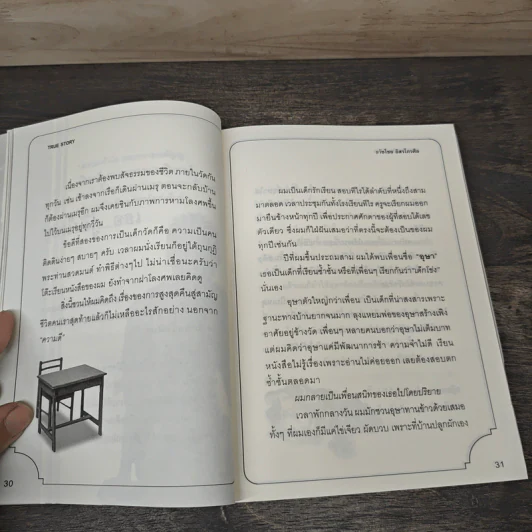 TRUE STORY
เนื่องจากเราต้องพบสัจธรรมของชีวิต ภายในวัดกัน
ทุกวัน เช่น เช้าลงจากเรือก็เดินผ่านเมรุ ตอนจะกลับบ้าน
ก็ต้องผ่านเมรุอีก ผมจึงเคยชินกับภาพการหามโลงศพขึ้น
ไปไว้บนเมรุอยู่ทุกวี่วัน
ข้อดีที่สองของการเป็นเด็กวัดก็คือ ความเป็นคน
คิดตินง่ายๆ สบายๆ ครับ เวลาผมนั่งเรียนก็อยู่ใต้ถุนกุฏิ
พระท่านสวดมนต์ ทำพิธีต่างๆไป ไม่น่าเชื่อนะครับว่า
โต๊ะเรียนหนังสือของผม ยังทำจาฝาโลงศพเลยคิดดู
สิ่งนี้ชวนให้ผมคิดถึง เรื่องของการสูงสุดคืนสู่สามัญ
ชีวิตคนเราสุดท้ายแล้วก็ไม่เหลืออะไรสักอย่าง นอกจาก
"ความดี"
30
ผมเป็นเด็กรักเรียน สอบทีไรได้ลำดับที่หนึ่งถึงสาม
มาตลอด เวลาประชุมกันทั้งโรงเรียนทีไร ครูจะเรียกผมออก
มายืนข้างหน้าทุกปี เพื่อประกาศศักดาของผู้ที่สอบได้เลข
ตัวเดียว ซึ่งผมก็ไม่ผืนเสมอว่าที่ตรงนี้จะต้องเป็นของผม
ทุกปีเช่นกัน
ปีที่ผมขึ้นประถมสาม ผมได้พบเพื่อนชื่อ "อุษา"
เธอเป็นเด็กที่เรียนซ้ำชั้น หรือที่เพื่อนๆ เรียกกันว่า"เด็กโข่ง"
นั่นเอง
อุษาตัวใหญ่กว่าเพื่อน เป็นเด็กที่น่าสงสารเพราะ
ฐานะทางบ้านยากจนมาก ลุงแหยมพ่อของอุษาสร้างเพิง
อาศัยอยู่ข้างวัด เพื่อนๆ หลายคนบอกว่าอุษาไม่เต็มบาท
แต่ผมคิดว่าอุษาแค่มีพัฒนาการช้า ความจำไม่ดี เรียน
หนังสือไม่รู้เรื่องเพราะอ่านไม่ค่อยออก เลยต้องสอบตก
ซ้ำชั้นตลอดมา
ผมกลายเป็นเพื่อนสนิทของเธอไปโดยปริยาย
เวลาพักกลางวัน ผมมักชวนอุษาทานข้าวด้วยเสมอ
ทั้งๆ ที่ผมเองก็มีแค่ไข่เจียว ผัดบวบ เพราะที่บ้านปลูกผักเอง
31